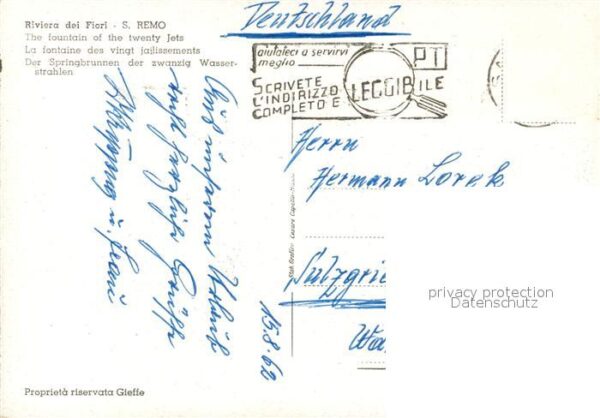 Riviera dei Fiori - S. REMO
The fountain of the twenty Jets
La fontaine des vingt jaillissements
Der Springbrunnen der zwanzig Wasser-
strahlen
Deutschland
aiutateci a servirvi
meglio
PT
SCRIVETE
L'INDIRIZZO
COMPLETO E
LEGGIBILE
Herrn
Hermann Lorek
Sulzgrie
privacy protection
Datenschutz
Aus unserem Urlaub
herzliche Grüsse
u. Frau
15.8.62
Proprietà riservata Gieffe